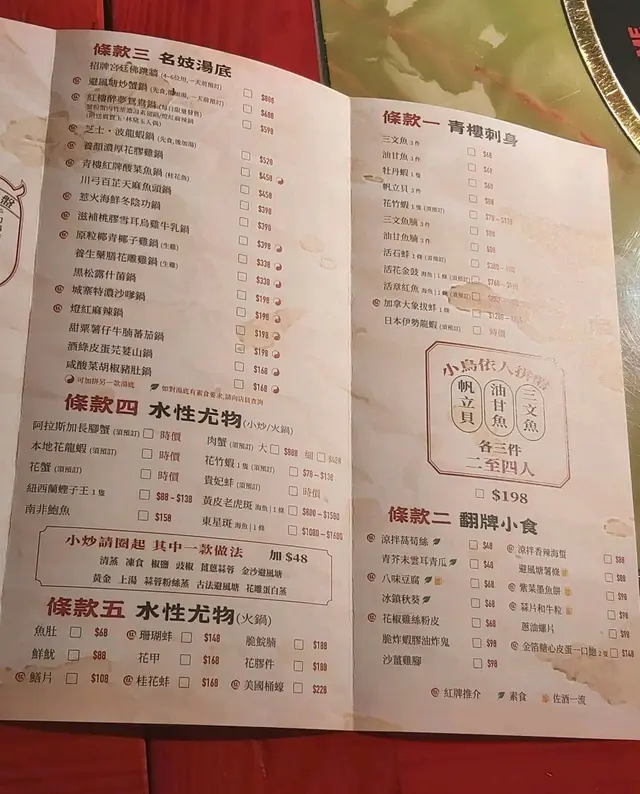 條款三 名妓湯底
招牌宮廷佛跳牆 (4-6位用,一天前預訂) $808
避風塘炒蟹鍋 (先食,後加湯,一天前預訂) $608
紅樓醉夢鴛鴦鍋 (每日限量發售) $598
芝士·波龍蝦鍋 (先食,後加湯)
養顏濃厚花膠雞鍋 $528
青樓紅牌酸菜魚鍋 (桂花魚) $458
川弓百芷天麻魚頭鍋 $458
惹火海鮮冬陰功鍋 $398
滋補桃膠雪耳烏雞牛乳鍋 $398
原粒椰青椰子雞鍋 (生雞) $398
養生藥膳花雕雞鍋 (生雞) $338
黑松露什菌鍋 $338
城寨特濃沙嗲鍋 $198
燈紅麻辣鍋 $198
甜粟薯仔牛腩蕃茄鍋 $198
酒綠皮蛋芫荽山鍋 $198
咸酸菜胡椒豬肚鍋 $168
$168
可加拼另一款湯底 如對湯底有素食要求,請向店員查詢
條款四 水性尤物(小炒/火鍋)
阿拉斯加長腳蟹 (須預訂) 時價
本地花龍蝦 (須預訂) 時價
花蟹 (須預訂) 時價
紐西蘭螳子王 1隻 $88-$138
南非鮑魚 $158
肉蟹 (須預訂) 大 $808 細
花竹蝦 1隻 (須預訂) $78-$138
貴妃蚌 (須預訂) 時價
黃皮老虎斑 海魚|1條 $600-$1500
東星斑 海魚|1條 $1080-$1680
小炒請圈起 其中一款做法 加 $48
清蒸 凍食 椒鹽 豉椒 薑蔥蒜蓉 金沙避風塘
黃金 上湯 蒜蓉粉絲蒸 古法避風塘 花雕蛋白蒸
條款五 水性尤物(火鍋)
魚肚 $68 珊瑚蚌 $148 脆鯇腩 $108
鮮魷 $88 花甲 $168 花膠件 $188
鱔片 $108 桂花蚌 $168 美國桶蠔 $228
條款一 青樓刺身
三文魚 3件 $68
油甘魚 3件 $68
牡丹蝦 1件 $68
帆立貝 3件 $88
花竹蝦 1隻 (須預訂) $78-$138
三文魚腩 3件 $88
油甘魚腩 3件 $88
活石蚌 1條 (須預訂)
活花金鼓 海魚|1條 (須預訂) $768
活章紅魚 海魚|1條 (須預訂)
加拿大象拔蚌 1條
日本伊勢龍蝦 (須預訂) 時價
小鳥依人拼盤
三文魚
油甘魚
帆立貝
各三件
二至四人
$198
條款二 翻牌小食
涼拌萵筍絲 $48
青芥末雲耳青瓜 $48
八味豆腐 $68
冰鎮秋葵 $68
花椒雞絲粉皮 $68
脆炸蝦膠油炸鬼 $98
沙薑雞腳 $98
涼拌香辣海蜇 $88
避風塘薯條 $88
紫菜墨魚餅 $98
蒜片和牛粒 $98
蔥油螺片 $98
金箔糖心皮蛋一口鮑 2隻 $148
紅牌推介 素食 佐酒一流